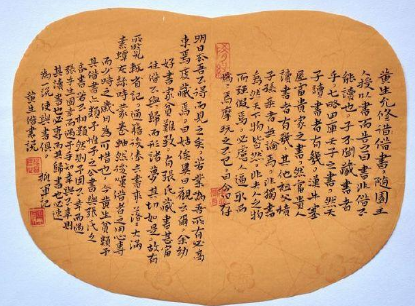 黄生允修借書隨園主
人授以書而告之曰書非借不
能讀也子不聞藏書者
乎七略四庫天子之書然天
子讀書者有幾汗牛塞
屋富貴家之書然富貴人
讀書者有幾其他祖父積
子孫棄者無論焉非獨書
為然天下物皆然非夫人之物
而強假焉必慮人逼取而
焉摩玩之不已曰今日存
明日去吾不得而見之矣若業為吾所有必高
束焉庋藏焉曰姑俟異日觀云爾余幼
好書家貧難致有張氏藏書甚富
往借不與歸而形諸夢其切如是故有
所覽輒省記通籍後俸去書來落落大滿
素蟫灰絲時蒙卷軸然後嘆借者之用心專
而少時之歲月為可惜也今黄生貧類予
其借書亦類予惟予之公書與張氏之
吝書若不相類然則予固不幸而遇
張乎生固幸而遇予乎知幸與不幸則
其讀書也必專而其歸書也必速
為一說使與書俱 軍記
黄生借書說